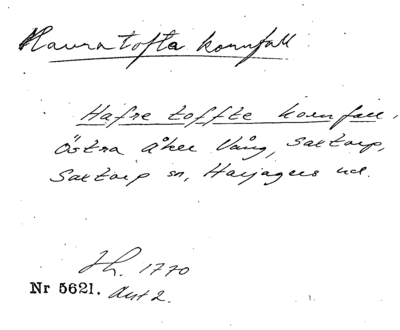 Havratofta kornfall
Hafre toffte korn fall,
Östra åker Vång, Saxtorp,
Saxtorp sn, Harjagers hd.
Jh. 1770
Nr 5621. Akt 2.